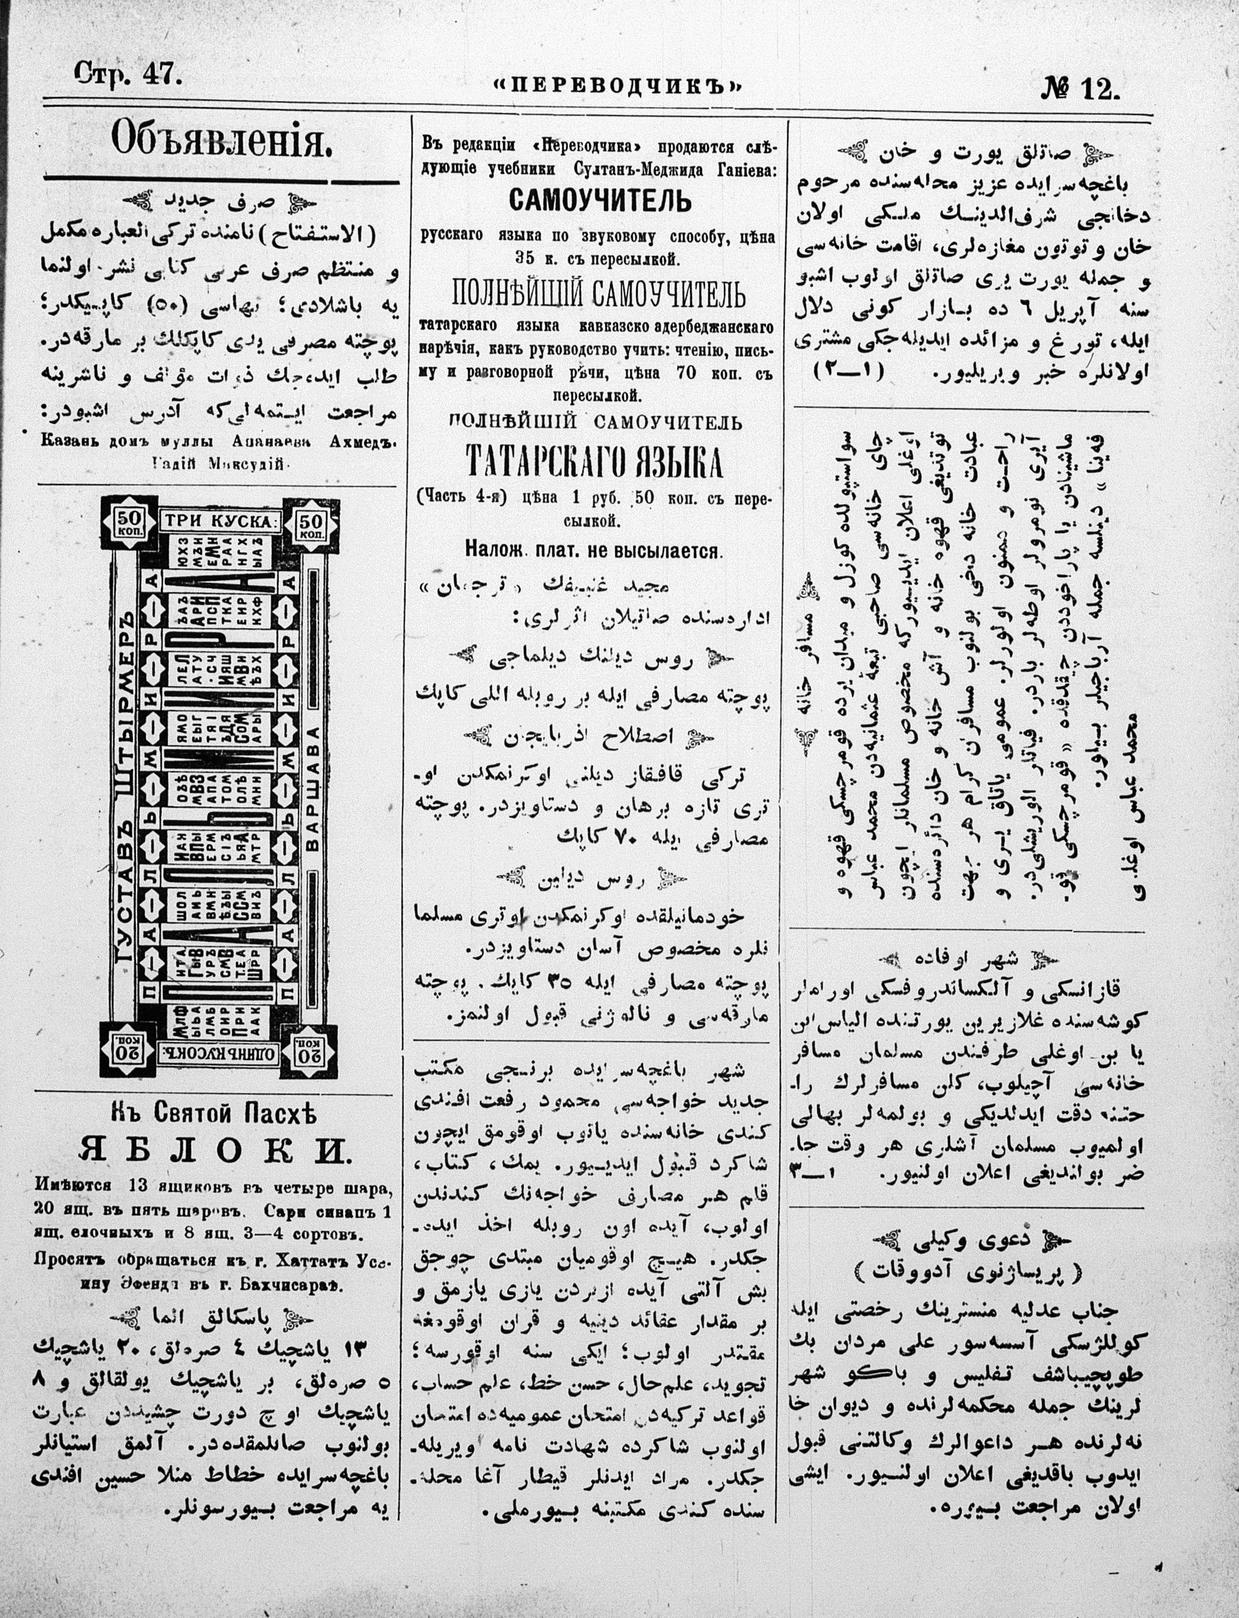 Стр. 47.
«ПЕРЕВОДЧИКЪ»
№ 12.
Объявленія.
صرف جدید
(الاستفتاح) نامنده ترکی العباره مکمل
و منتظم صرف عربی کتابی نشر اولنما
یه باشلادی؛ بهاسی (۵۰) کاپیکدر؛
پوچته مصرفی یدی کاپکلك بر مارقه‌در.
طلب ایده‌جك ذوات مؤلف و ناشرینه
مراجعت ایتمه‌لی‌که آدرس اشبودر:
Казань домъ муллы Апанаева Ахмедъ-
Гадій Максудій.
50 коп.
ТРИ КУСКА:
50 коп.
ГУСТАВЪ ШТЫРМЕРЪ
ПАЛЬМИРА
ВАРШАВА
20 коп
ОДИНЪ КУСОКЪ:
20 коп
Къ Святой Пасхѣ
ЯБЛОКИ.
Имѣются 13 ящиковъ въ четыре шара,
20 ящ. въ пять шаровъ. Сари синапъ 1
ящ. елочныхъ и 8 ящ. 3—4 сортовъ.
Просятъ обращаться къ г. Хаттатъ Усе-
ину Эфенди въ г. Бахчисараѣ.
پاسکالق الما
۱۳ یاشچیك ٤ صره‌لق، ۲۰ یاشچیك
۵ صره‌لق، بر یاشچیك یولقالق و ۸
یاشچیك اوچ دورت چشیددن عبارت
بولنوب صاتلمقده‌در. آلمق استیانلر
باغچه‌سرایده خطاط منلا حسین افندی
یه مراجعت بیورسونلر.
Въ редакціи «Переводчика» продаются слѣ-
дующіе учебники Султанъ-Меджида Ганіева:
САМОУЧИТЕЛЬ
русскаго языка по звуковому способу, цѣна
35 к. съ пересылкой.
ПОЛНѢЙШІЙ САМОУЧИТЕЛЬ
татарскаго языка кавказско адербеджанскаго
нарѣчія, какъ руководство учить: чтенію, пись-
му и разговорной рѣчи, цѣна 70 коп. съ
пересылкой.
ПОЛНѢЙШІЙ САМОУЧИТЕЛЬ
ТАТАРСКАГО ЯЗЫКА
(Часть 4-я) цѣна 1 руб. 50 коп. съ пере-
сылкой.
Налож. плат. не высылается.
مجید غنیفك «ترجمان»
اداره‌سنده صاتیلان اثرلری:
روس دیلنك دیلماجی
پوچته مصارفی ایله بر روبله اللی کاپك
اصطلاح اذربایجان
ترکی قافقاز دیلنی اوکرنمکدن او-
تری تازه برهان و دستاویزدر. پوچته
مصارفی ایله ۷۰ کاپك
روس دیلین
خودمانیلقده اوکرنمکدن اوتری مسلما
نلره مخصوص آسان دستاویزدر.
پوچته مصارفی ایله ۳۵ کاپك. پوچته
مارقه‌سی و نالوژنی قبول اولنمز.
شهر باغچه‌سرایده برنجی مکتب
جدید خواجه‌سی محمود رفعت افندی
کندی خانه‌سنده یاتوب اوقومق ایچون
شاکرد قبول ایدیور. یمك، کتاب،
قلم هر مصارفی خواجه‌نك کندندن
اولوب، آیده اون روبله اخذ ایده-
جکدر. هیچ اوقومیان مبتدی چوجق
بش آلتی آیده ازبردن یازی یازمق و
بر مقدار عقائد دینیه و قران اوقومغه
مقتدر اولوب؛ ایکی سنه اوقورسه؛
تجوید، علم‌حال، حسن خط، علم حساب،
قواعد ترکیه‌دن امتحان عمومیه‌ده امتحان
اولنوب شاکرده شهادت نامه ویریله-
جکدر. مراد ایدنلر قیطار آغا محله-
سنده کندی مکتبنه بیورملی.
صاتلق یورت و خان
باغچه‌سرایده عزیز محله‌سنده مرحوم
دخانجی شرف‌الدینك ملکی اولان
خان و توتون مغازه‌لری، اقامت خانه‌سی
و جمله یورت یری صاتلق اولوب اشبو
سنه آپریل ٦ ده بازار کونی دلال
ایله، تورغ و مزائده ایدیله‌جکی مشتری
اولانلره خبر ویریلیور. (۱—۲)
مسافر خانه
سواستپولده کوزل و میدان یرده قومرچسکی قهوه و
چای خانه‌سی صاحبی تبعهٔ عثمانیه‌دن محمد عباس
اوغلی اعلان ایدیورکه مخصوص مسلمانلر ایچون
توتدیغی قهوه خانه و آش خانه و خان دائره‌سنده
عبادت خانه دخی بولنوب مسافرن کرام هر جهت
راحت و ممنون اولورلر. عمومی یاتاق یری و
آیری نومرولر اوطه‌لر باردر. فیاتلر الوریشلی‌در.
ماشینادن یا پاراخوددن چقدقده «قومرچسکی قو-
فه‌ینا» دینلسه جمله آرباجیلر بیلور.
محمد عباس اوغلی
شهر اوفاده
قازانسکی و آلکساندروفسکی اوراملر
کوشه‌سنده غلازیرین یورتنده الیاس ابن
یا بن اوغلی طرفندن مسلمان مسافر
خانه‌سی آچیلوب، کلن مسافرلرك را-
حتنه دقت ایدلدیکی و بولمه‌لر بهالی
اولمیوب مسلمان آشلری هر وقت حا-
ضر بولندیغی اعلان اولنیور. ۱—۳
دعوی وکیلی
(پریساژنوی آدووقات)
جناب عدلیه منسترینك رخصتی ایله
کوللژسکی آسسه‌سور علی مردان بك
طوپچیباشف تفلیس و باکو شهر
لرینك جمله محکمه‌لرنده و دیوان خا
نه‌لرنده هر داعوالرك وکالتنی قبول
ایدوب باقدیغی اعلان اولنیور. ایشی
اولان مراجعت بیوره.